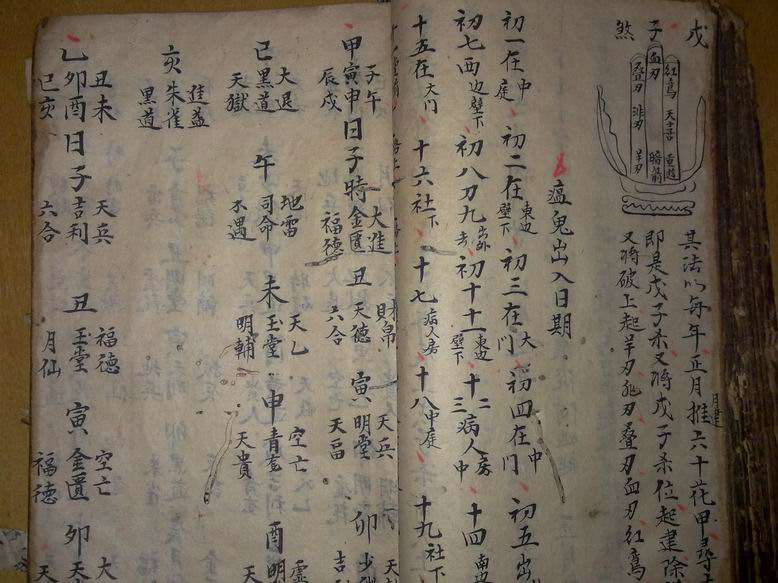 戊子煞
紅鸞 天喜 重喪
血刃 暗箭
疊刃 飛刃 羊刃
其法以每年正月推六十花甲尋
即是戊子杀又將戊子杀位起建除
又將破上起羊刃飛刃疊刃血刃紅鸞
瘟鬼出入日期
初一在中庭 初二在東边壁下 初三在大門 初四在中門 初五出
初七西边壁下 初八刀九出外去 初十十一東边壁下 十二三病人房中 十四南边
十五在大門 十六社下 十七病人房 十八中庭 十九社下
甲寅申日子時金匱 大進 福德 丑天德 財帛 六合 寅明堂 天兵 天畐 卯
子午
辰戌
巳黑道 大退 天獄 午司命 地雷 不遇 未玉堂 天乙 明輔 申青龍 空亡 天貴 酉明
亥朱雀 進益 黑道
乙卯酉日子吉利 天兵 六合 丑玉堂 福德 月仙 寅金匱 空亡 福德 卯天
丑未
巳亥